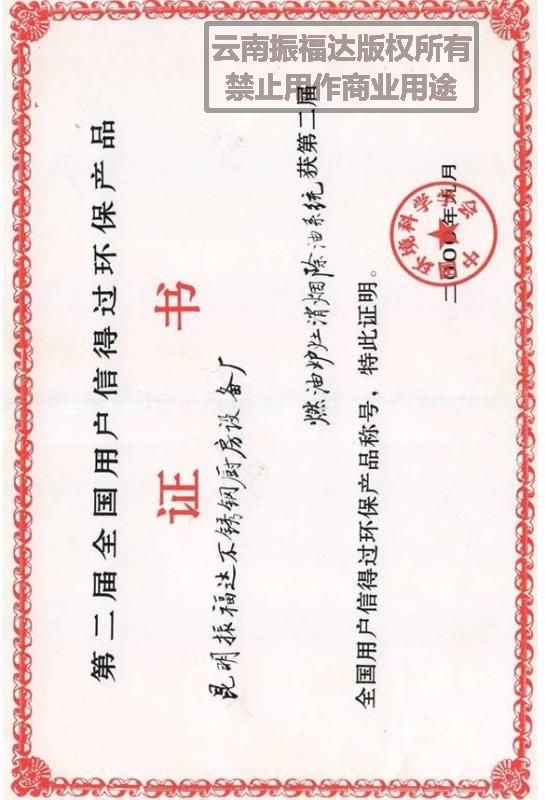 云南振福达版权所有
禁止用作商业用途
第二届全国用户信得过环保产品
证书
昆明振福达不锈钢厨房设备厂
燃油炉灶消烟除油系统获第二届
全国用户信得过环保产品称号，特此证明。
中国环境科学学会
二〇〇〇年九月